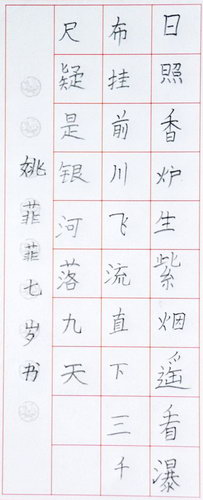 日照香炉生紫烟遥看瀑
布挂前川飞流直下三千
尺疑是银河落九天
姚菲菲七岁书